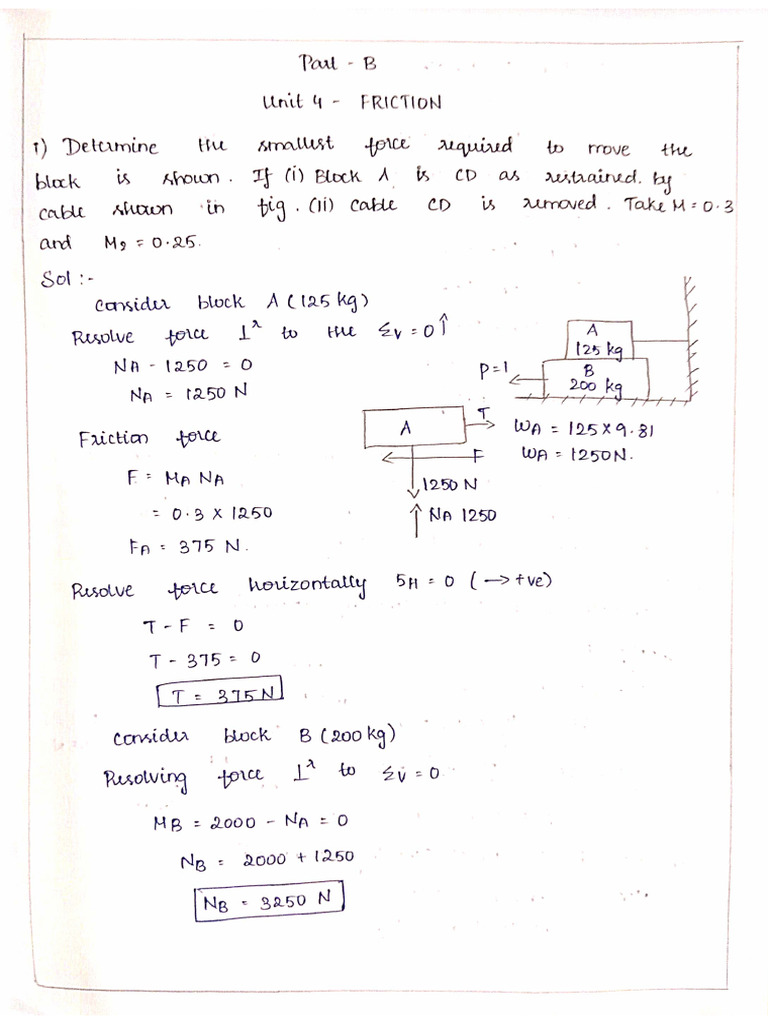 Part - B
Unit 4 - FRICTION
1) Determine the smallest force required to move the
block is shown. If (i) Block A is CD as restrained. by
cable shown in fig. (ii) cable CD is removed. Take M = 0.3
and M2 = 0.25.
Sol :-
Consider block A (125 kg)
Resolve force ⊥λ to the Σv = 0 ↑
NA - 1250 = 0
NA = 1250 N
Friction force
F = MA NA
= 0.3 X 1250
FA = 375 N.
A
125 kg
P=1
B
200 kg
WA = 125 X 9.81
WA = 1250N.
A
T
F
1250 N
NA 1250
Resolve force horizontally 5H = 0 ( → +ve)
T - F = 0
T - 375 = 0
T = 375 N
Consider block B (200 kg)
Resolving force ⊥λ to Σv = 0
MB = 2000 - NA = 0
NB = 2000 + 1250
NB = 3250 N